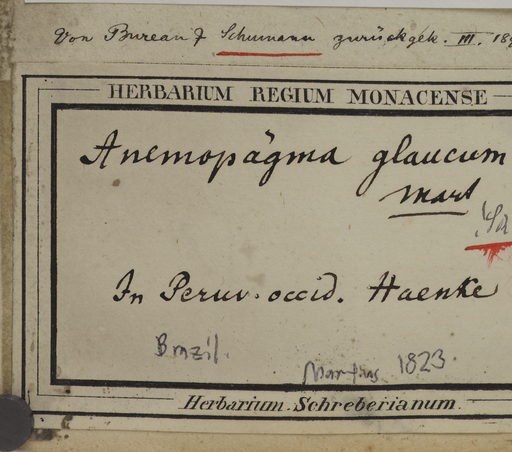 Von Bureau & Schumann zurückgek. III. 189
HERBARIUM REGIUM MONACENSE
Anemopägma glaucum
Mart
In Peruv. occid. Haenke
Brazil.
Martius 1823.
Herbarium Schreberianum.